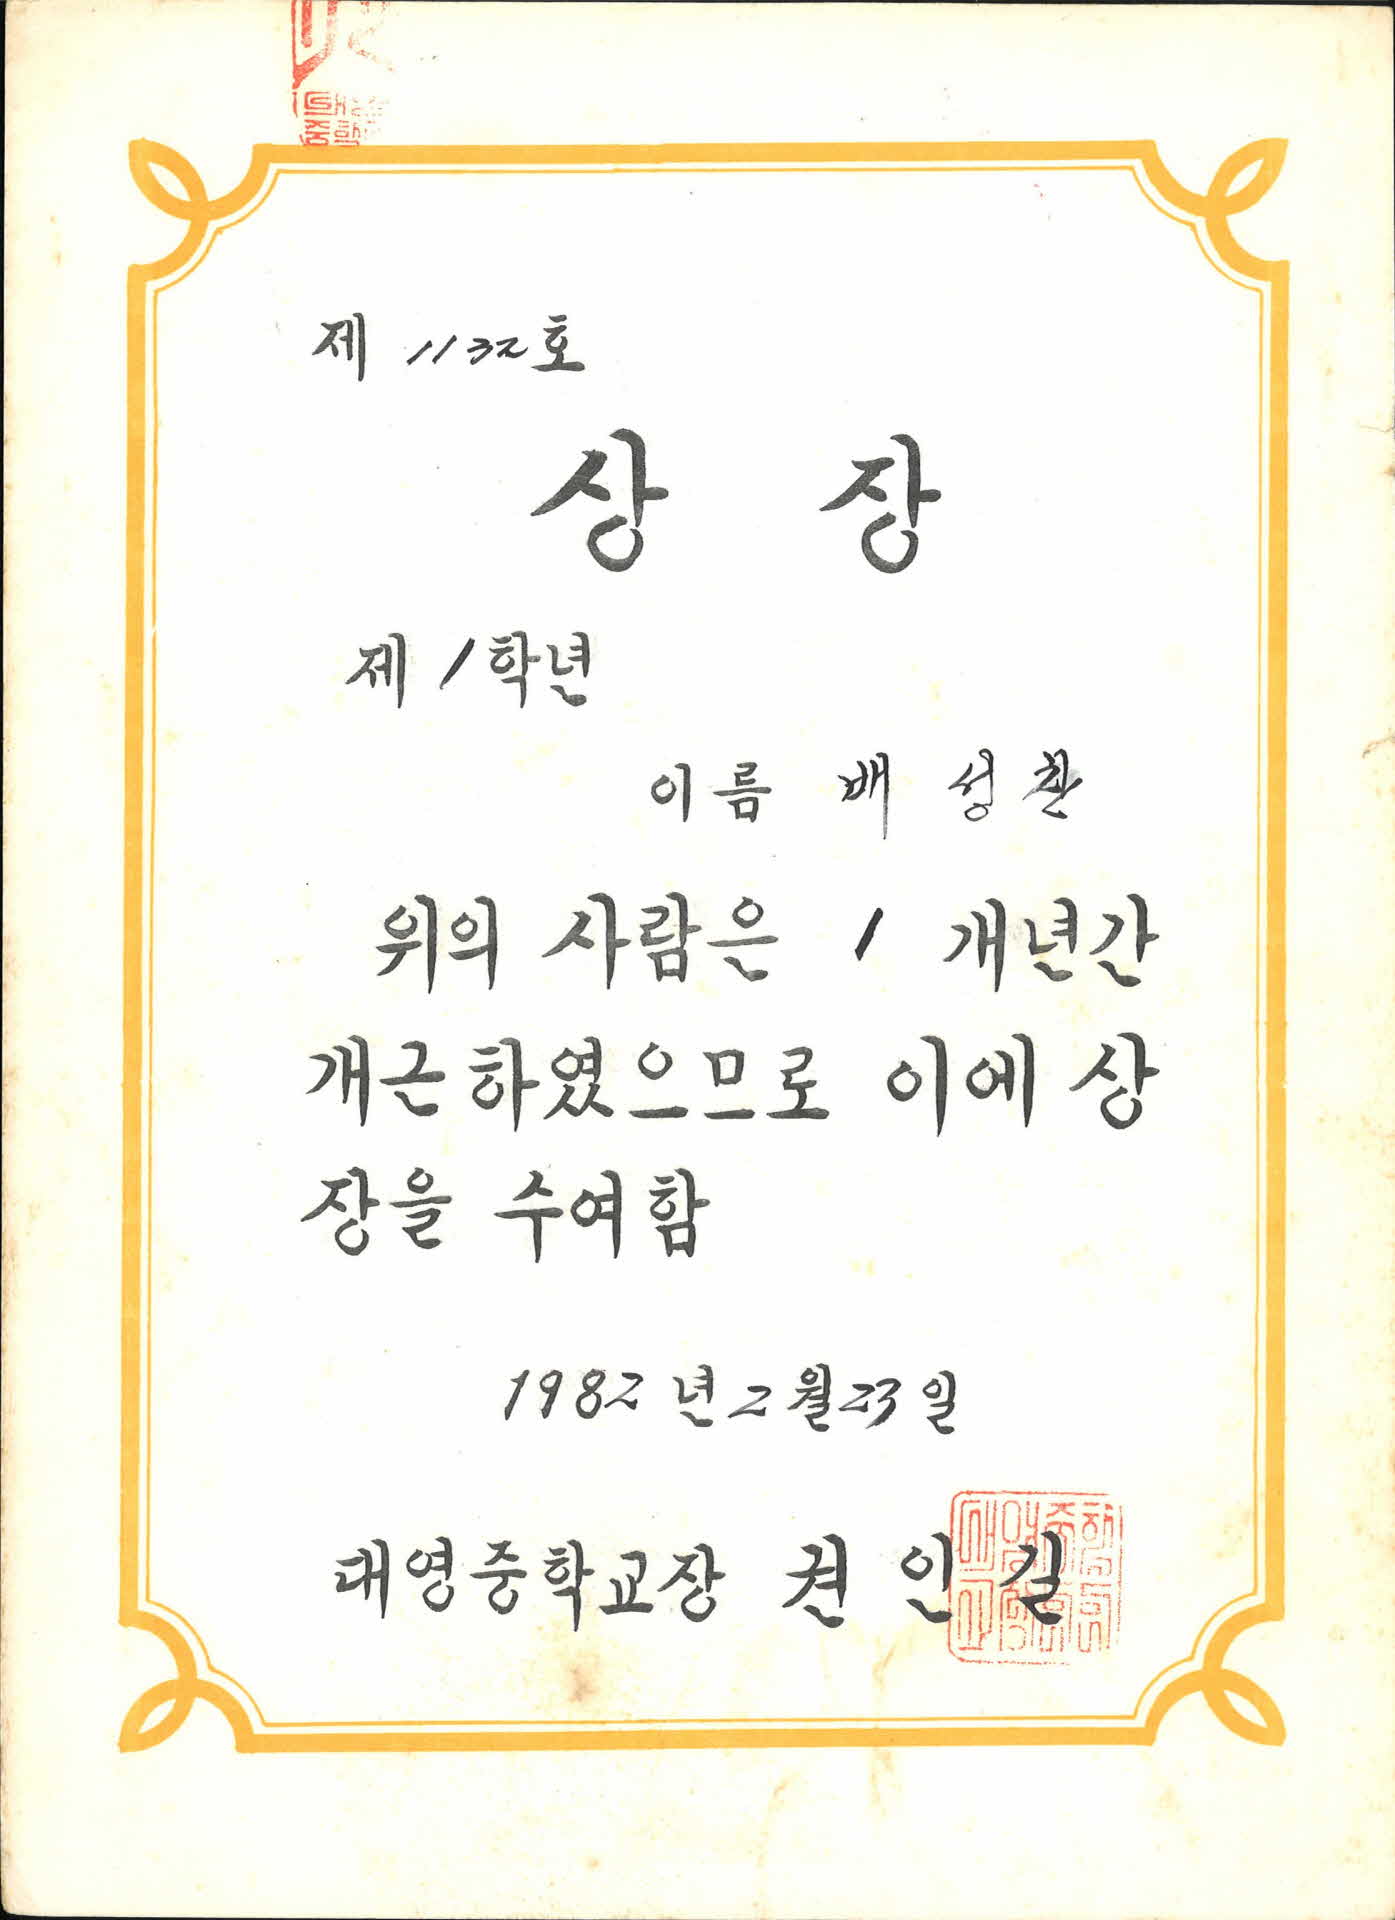 제 1132호
상 장
제 1 학년
이름 배 성 환
위의 사람은 1 개년간
개근하였으므로 이에 상
장을 수여함
1982 년 2 월 23 일
대영중학교장 권 인 길